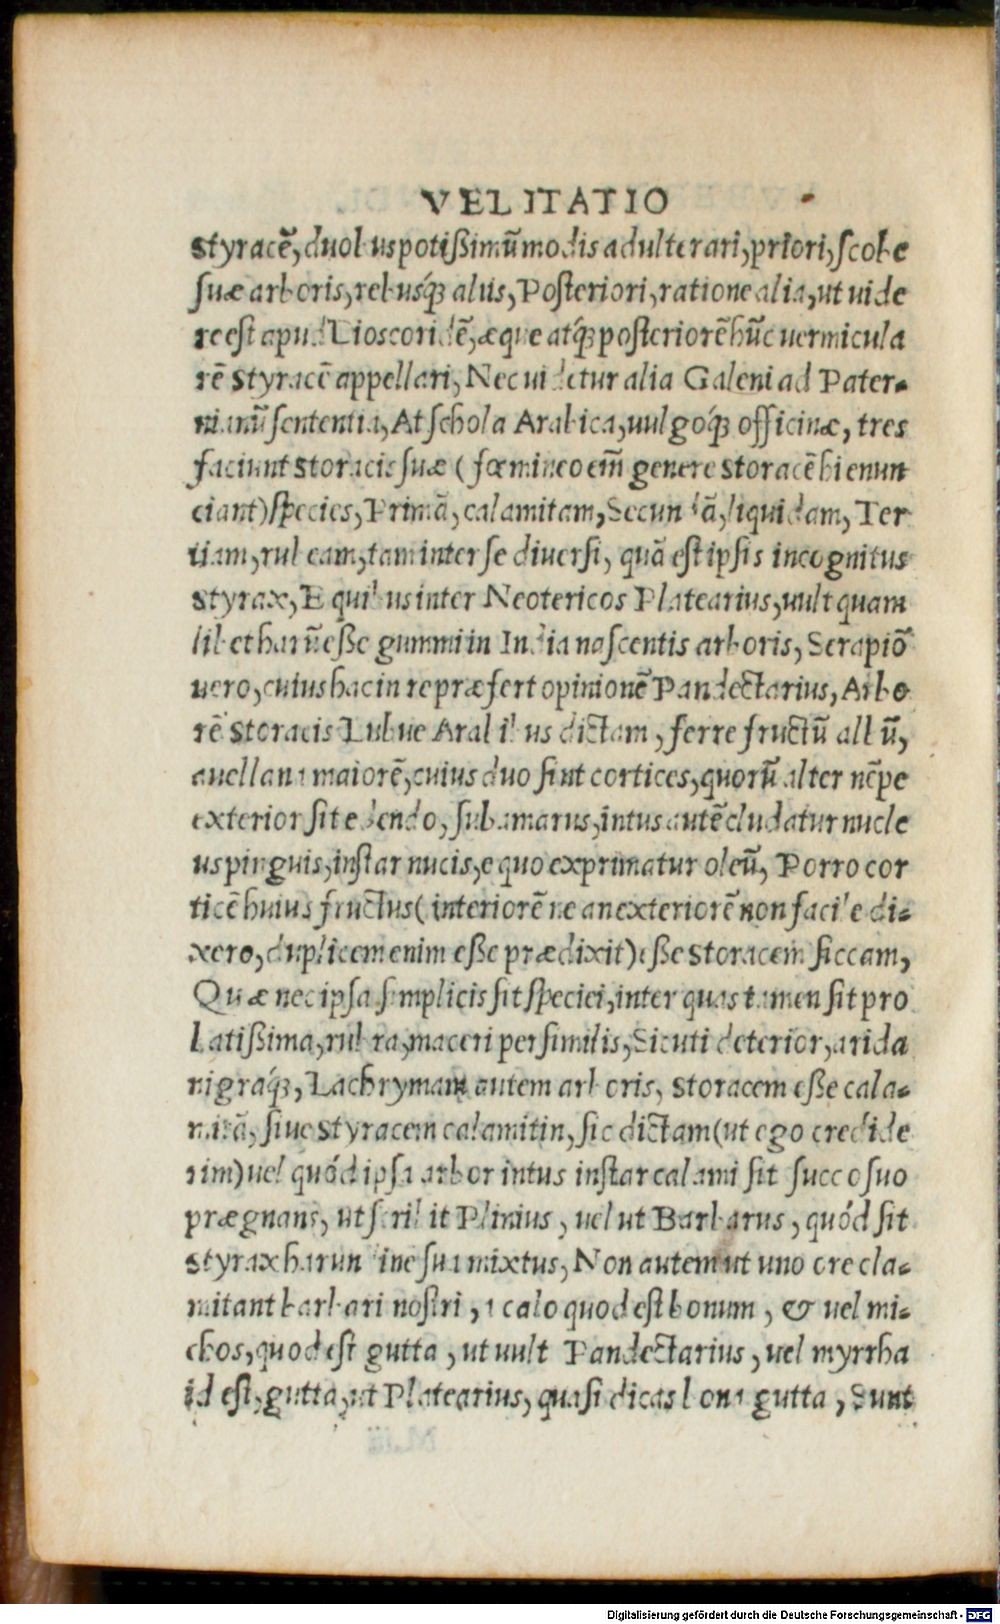 VELITATIO
Styracē, duobus potißimū modis adulterari, priori, scobe
suæ arboris, rebusq́ꝫ aliis, Posteriori, ratione alia, ut uide
re est apud Dioscoridē, æque atq́ꝫ posteriorē hūc uermicula
rē Styracē appellari, Nec uidetur alia Galeni ad Pater-
nianū sententia, At schola Arabica, uulgoq́ꝫ officinæ, tres
faciunt Storacis suæ (fœmineo em̃ genere Storacē hi enun
ciant) species, Primā, calamitam, Secundā, liquidam, Ter
tiam, rubeam, tam inter se diuersi, quā est ipsis incognitus
Styrax, E quibus inter Neotericos Platearius, uult quam
libet harū eße gummi in India nascentis arboris, Serapiō
uero, cuius hac in re præfert opinionē Pandectarius, Arbo
rē Storacis Lubue Arabibus dictam, ferre fructū albū,
auellana maiorē, cuius duo sint cortices, quorū alter nēpe
exterior sit edendo, subamarus, intus autē cludatur nucle
us pinguis, instar nucis, e quo exprimatur oleū, Porro cor
ticē huius fructus (interiorē ne an exteriorē non facile di-
xero, duplicem enim eße prædixit) eße Storacem siccam,
Quæ nec ipsa simplicis sit speciei, inter quas tamen sit pro
batißima, rubra, maceri persimilis, Sicuti deterior, arida
nigraq́ꝫ, Lachrymam autem arboris, Storacem eße cala-
mitā, siue Styracem calamitin, sic dictam (ut ego credide
rim) uel quód ipsa arbor intus instar calami sit succo suo
prægnans, ut scribit Plinius, uel ut Barbarus, quód sit
Styrax harundine sua mixtus, Non autem ut uno ore cla-
mitant barbari nostri, a calo quod est bonum, & uel mi-
ckos, quod est gutta, ut uult Pandectarius, uel myrrha
id est, gutta, ut Platearius, quasi dicas bona gutta, Sunt
Digitalisierung gefördert durch die Deutsche Forschungsgemeinschaft - DFG